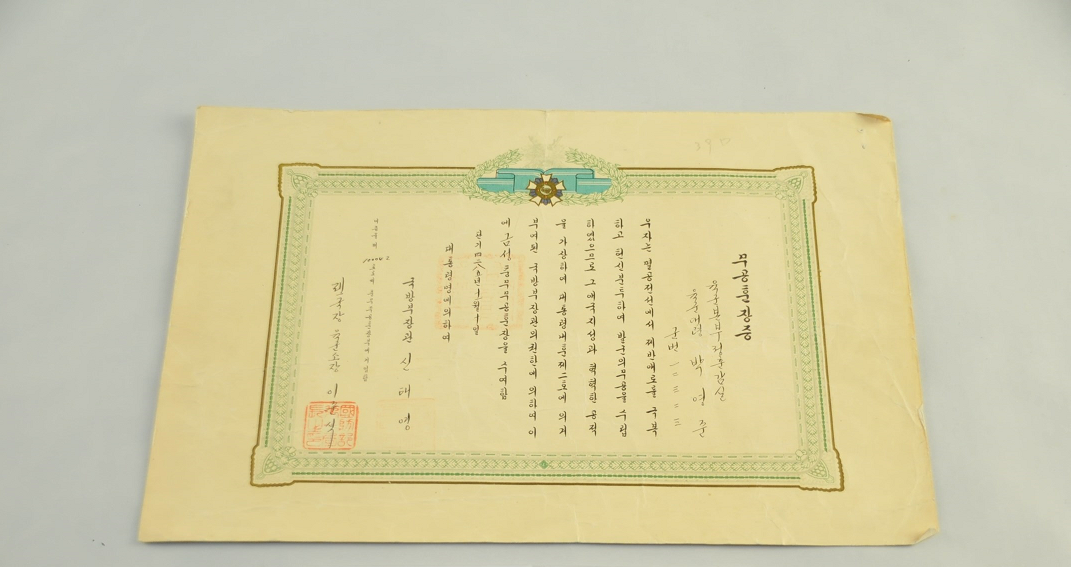 무공훈장증
육군본부정훈감실
육군대령 박영준
군번 一〇三三三
우자는 멸공전선에서 제반애로를 극복
하고 헌신분투하여 발군의무공을 수립
하였으므로 그 애국지성과 혁혁한 공적
을 가상하여 대통령내훈제二호에 의거
부여된 국방부장관의권한에 의하여 이
에 금성충무무공훈장을 수여함
단기四二八五년十월十일
대통령영에의하여
국방부장관 신태영